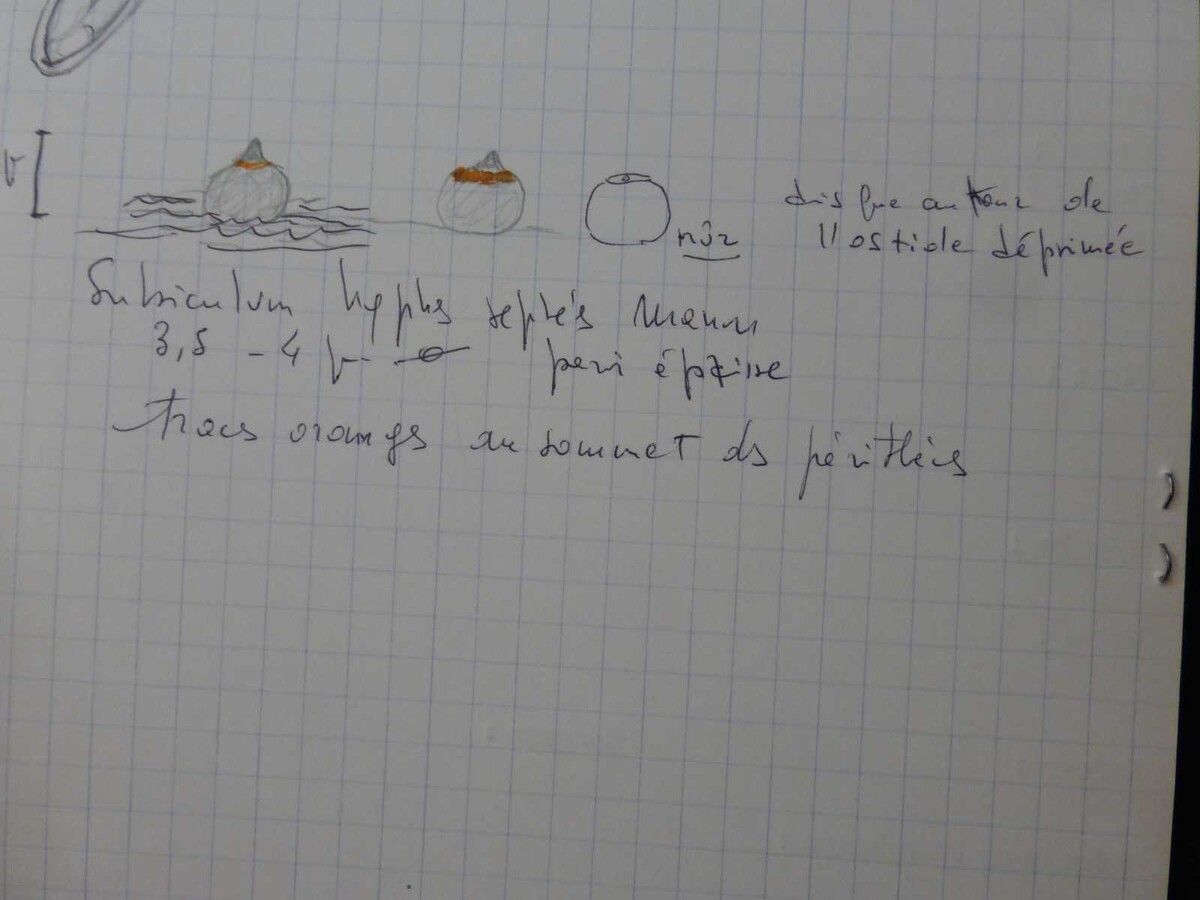 disque autour de
l'ostiole déprimée
Subiculum hyphes septés
3,5 - 4 µ paroi épaisse
traces oranges au sommet ds périthèces